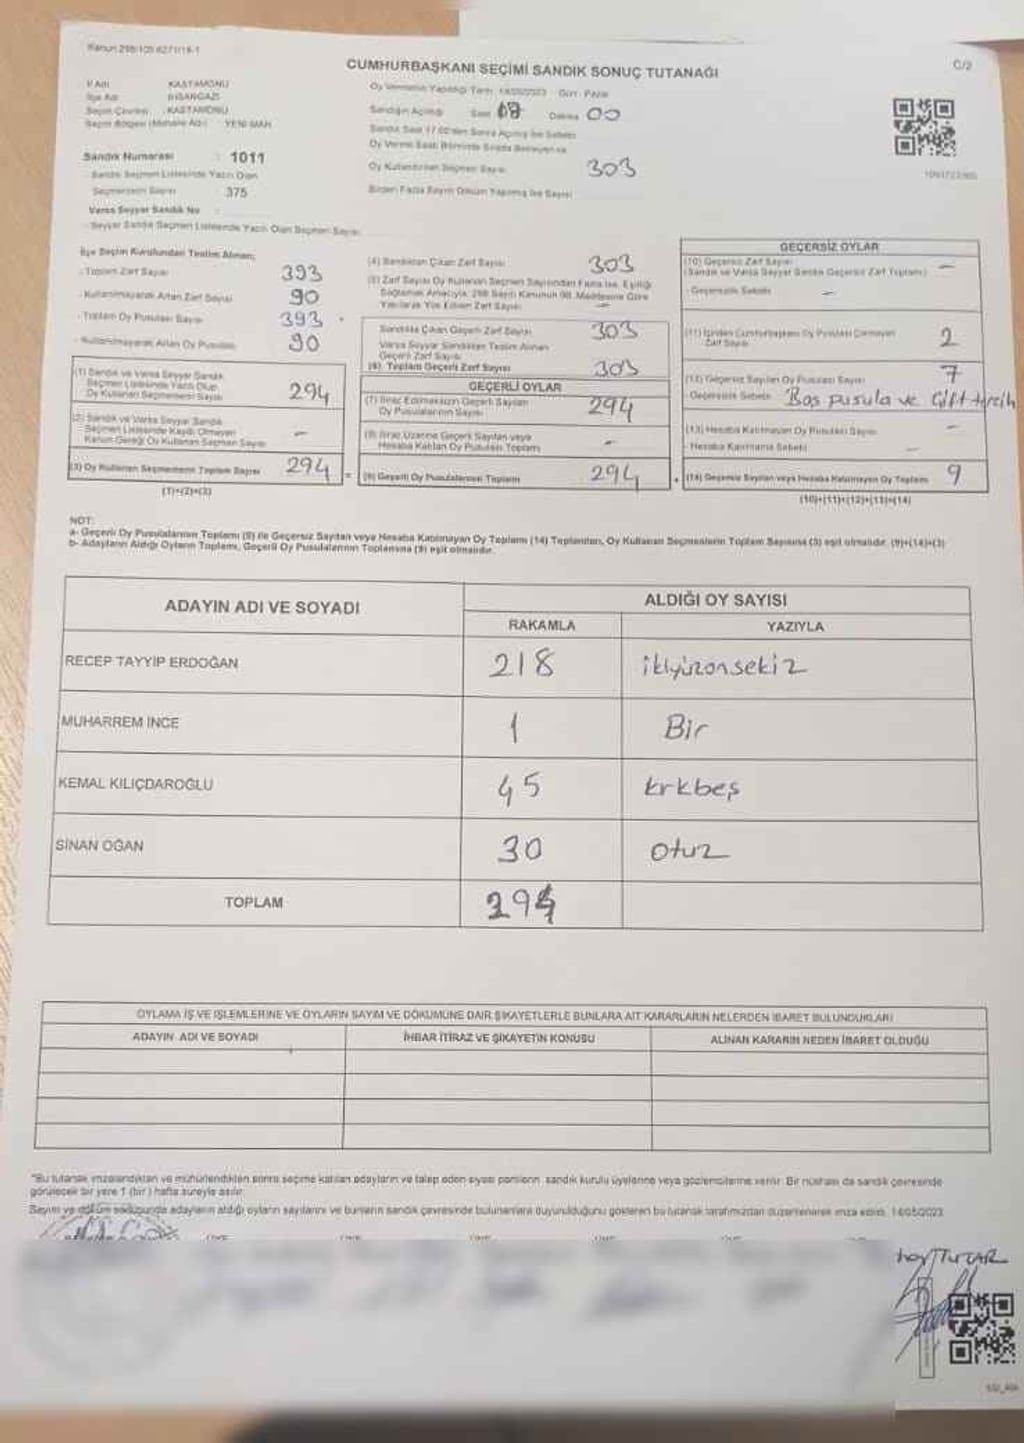 Kanun 298/105 6271/18-1
CUMHURBAŞKANI SEÇİMİ SANDIK SONUÇ TUTANAĞI
C/2
İl Adı KASTAMONU
İlçe Adı İHSANGAZİ
Seçim Çevresi : KASTAMONU
Seçim Bölgesi (Mahalle Adı) : YENİ MAH
Sandık Numarası : 1011
Sandık Seçmen Listesinde Yazılı Olan
Seçmenlerin Sayısı 375
Varsa Seyyar Sandık No
- Seyyar Sandık Seçmen Listesinde Yazılı Olan Seçmen Sayısı
Oy Vermenin Yapıldığı Tarih 14/05/2023 Gün: Pazar
Sandığın Açıldığı Saat 08 Dakika 00
Sandık Saat 17.00'den Sonra Açılmış İse Sebebi
Oy Verme Saati Bitiminde Sırada Bekleyen
Oy Kullandırılan Seçmen Sayısı 303
Birden Fazla Sayım Döküm Yapılmış İse Sayısı
İlçe Seçim Kurulundan Teslim Alınan;
- Toplam Zarf Sayısı 393
- Kullanılmayarak Artan Zarf Sayısı 90
- Toplam Oy Pusulası Sayısı 393
- Kullanılmayarak Artan Oy Pusulası 90
(1) Sandık ve Varsa Seyyar Sandık
Seçmen Listesinde Yazılı Olup
Oy Kullanan Seçmenlerin Sayısı 294
(2) Sandık ve Varsa Seyyar Sandık
Seçmen Listesinde Kayıtlı Olmayan
Kanun Gereği Oy Kullanan Seçmen Sayısı -
(3) Oy Kullanan Seçmenlerin Toplam Sayısı 294
(1)+(2)=(3)
(4) Sandıktan Çıkan Zarf Sayısı 303
(5) Zarf Sayısı Oy Kullanan Seçmen Sayısından Fazla İse, Eşitliği
Sağlamak Amacıyla, 298 Sayılı Kanunun 98. Maddesine Göre
Yakılarak Yok Edilen Zarf Sayısı -
Sandıkta Çıkan Geçerli Zarf Sayısı 303
Varsa Seyyar Sandıktan Teslim Alınan
Geçerli Zarf Sayısı
(6) Toplam Geçerli Zarf Sayısı 303
GEÇERLİ OYLAR
(7) İtiraz Edilmeksizin Geçerli Sayılan
Oy Pusulalarının Sayısı 294
(8) İtiraz Üzerine Geçerli Sayılan veya
Hesaba Katılan Oy Pusulaları Toplamı -
= (9) Geçerli Oy Pusulalarının Toplamı 294
GEÇERSİZ OYLAR
(10) Geçersiz Zarf Sayısı
(Sandık ve Varsa Seyyar Sandık Geçersiz Zarf Toplamı) -
- Geçersizlik Sebebi -
(11) İçinden Cumhurbaşkanı Oy Pusulası Çıkmayan
Zarf Sayısı 2
(12) Geçersiz Sayılan Oy Pusulası Sayısı 7
- Geçersizlik Sebebi Boş pusula ve Çift tercih
(13) Hesaba Katılmayan Oy Pusulası Sayısı -
- Hesaba Katılmama Sebebi -
+ (14) Geçersiz Sayılan veya Hesaba Katılmayan Oy Toplamı 9
(10)+(11)+(12)+(13)=(14)
NOT:
a- Geçerli Oy Pusulalarının Toplamı (9) ile Geçersiz Sayılan veya Hesaba Katılmayan Oy Toplamı (14) Toplamları, Oy Kullanan Seçmenlerin Toplam Sayısına (3) eşit olmalıdır. (9)+(14)=(3)
b- Adayların Aldığı Oyların Toplamı, Geçerli Oy Pusulalarının Toplamına (9) eşit olmalıdır.
ADAYIN ADI VE SOYADI
ALDIĞI OY SAYISI
RAKAMLA YAZIYLA
RECEP TAYYİP ERDOĞAN 218 ikiyüzonsekiz
MUHARREM İNCE 1 Bir
KEMAL KILIÇDAROĞLU 45 kırkbeş
SİNAN OĞAN 30 otuz
TOPLAM 294
OYLAMA İŞ VE İŞLEMLERİNE VE OYLARIN SAYIM VE DÖKÜMÜNE DAİR ŞİKAYETLERLE BUNLARA AİT KARARLARIN NELERDEN İBARET BULUNDUKLARI
ADAYIN ADI VE SOYADI İHBAR İTİRAZ VE ŞİKAYETİN KONUSU ALINAN KARARIN NEDEN İBARET OLDUĞU
"Bu tutanak imzalandıktan ve mühürlendikten sonra seçime katılan adayların ve talep eden siyasi partilerin sandık kurulu üyelerine veya gözlemcilerine verilir. Bir nüshası da sandık çevresinde
görülecek bir yere 1 (bir) hafta süreyle asılır.
Sayım ve döküm sonucunda adayların aldığı oyların sayılarını ve bunların sandık çevresinde bulunanlara duyurulduğunu gösteren bu tutanak tarafımızdan düzenlenerek imza edildi. 14/05/2023
TUTAR